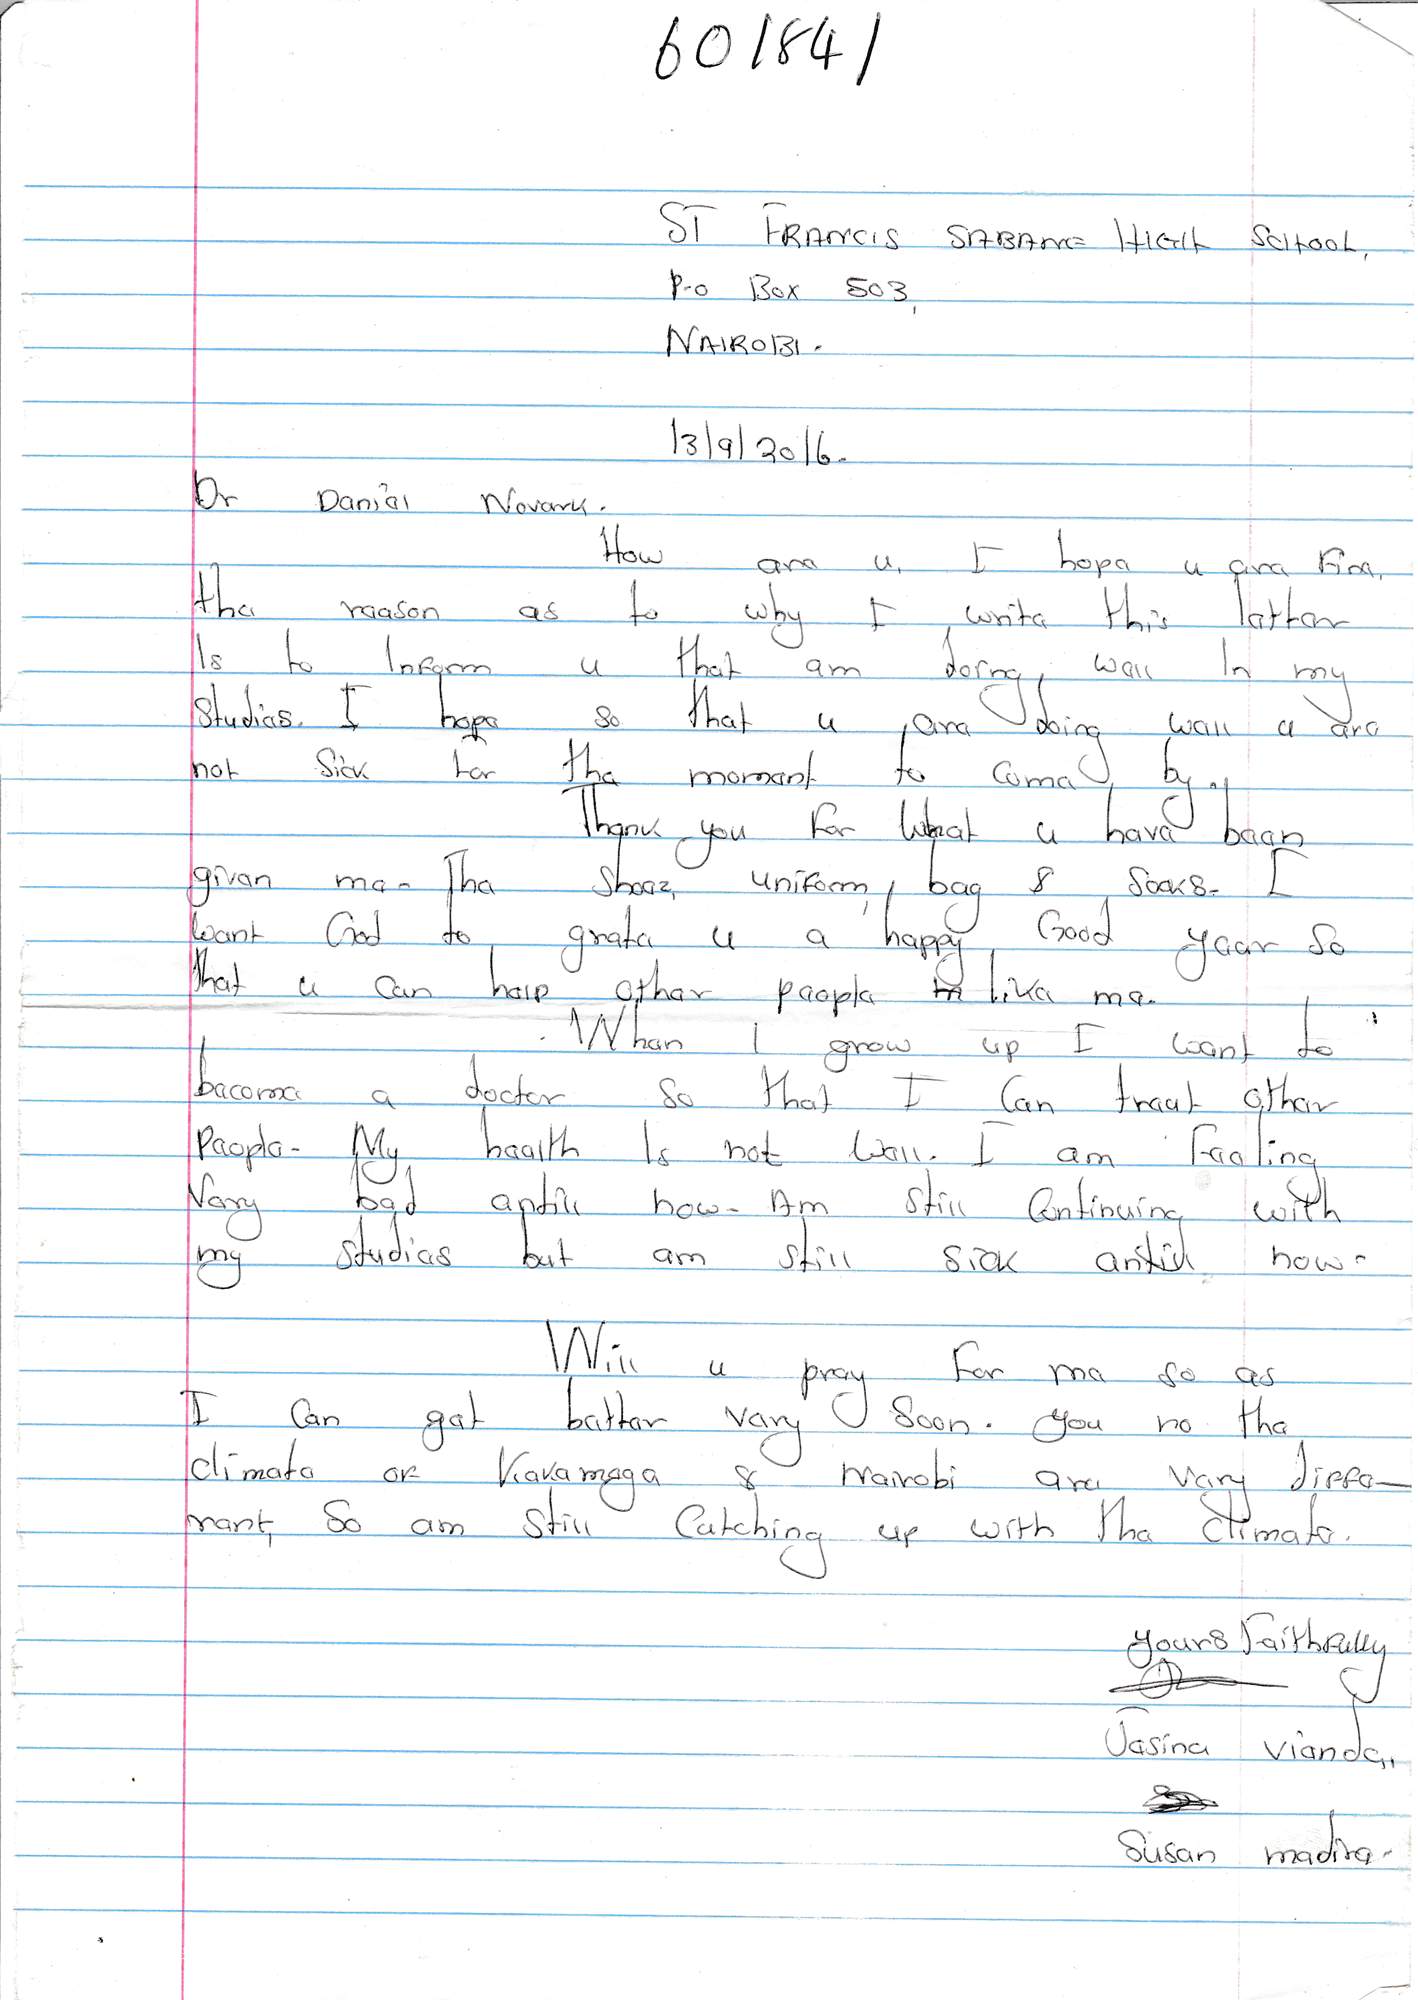 601841
ST FRANCIS SABANE HIGH SCHOOL,
P.O BOX 503,
NAIROBI.
13/9/2016.
Dr Daniel Novark.
How are u, I hope u are Fine,
the reason as to why I write this letter
Is to Inform u that am doing well In my
studies. I hope so that u are doing well u are
not sick for the moment to come by.
Thank you For What u have been
given me. The shoez, uniform, bag & socks. I
want God to grate u a happy Good year so
that u can help other people like me.
When I grow up I want to
become a doctor so that I can treat other
people. My health Is not well. I am Feeling
very bad antill now. Am still Continuing with
my studies but am still sick antill now.
Will u pray For me so as
I Can get better very soon. you no the
climate of Kakamega & Nairobi are very diffe-
rent, So am still Catching up with the climate.
yours Faithfully
Jesina vienda,,
Susan madira.